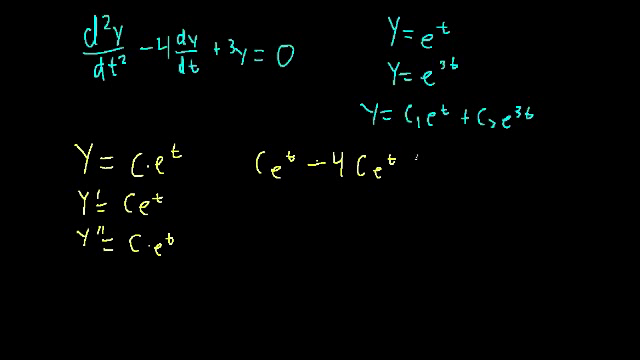 d²y/dt² - 4 dy/dt + 3y = 0
y = e^t
y = e^3t
y = c₁e^t + c₂e^3t
y = c·e^t
Ce^t - 4 Ce^t
y' = Ce^t
y'' = C·e^t